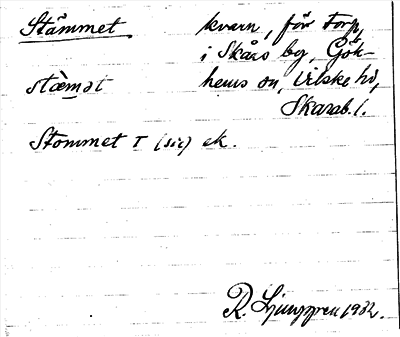 Stämmet kvarn, för Torp,
i Skårs by, Gök-
stæmət hems sn, Vilske hd,
Skarab. l.
Stommet T (sic) ek.
R. Ljunggren 1932.